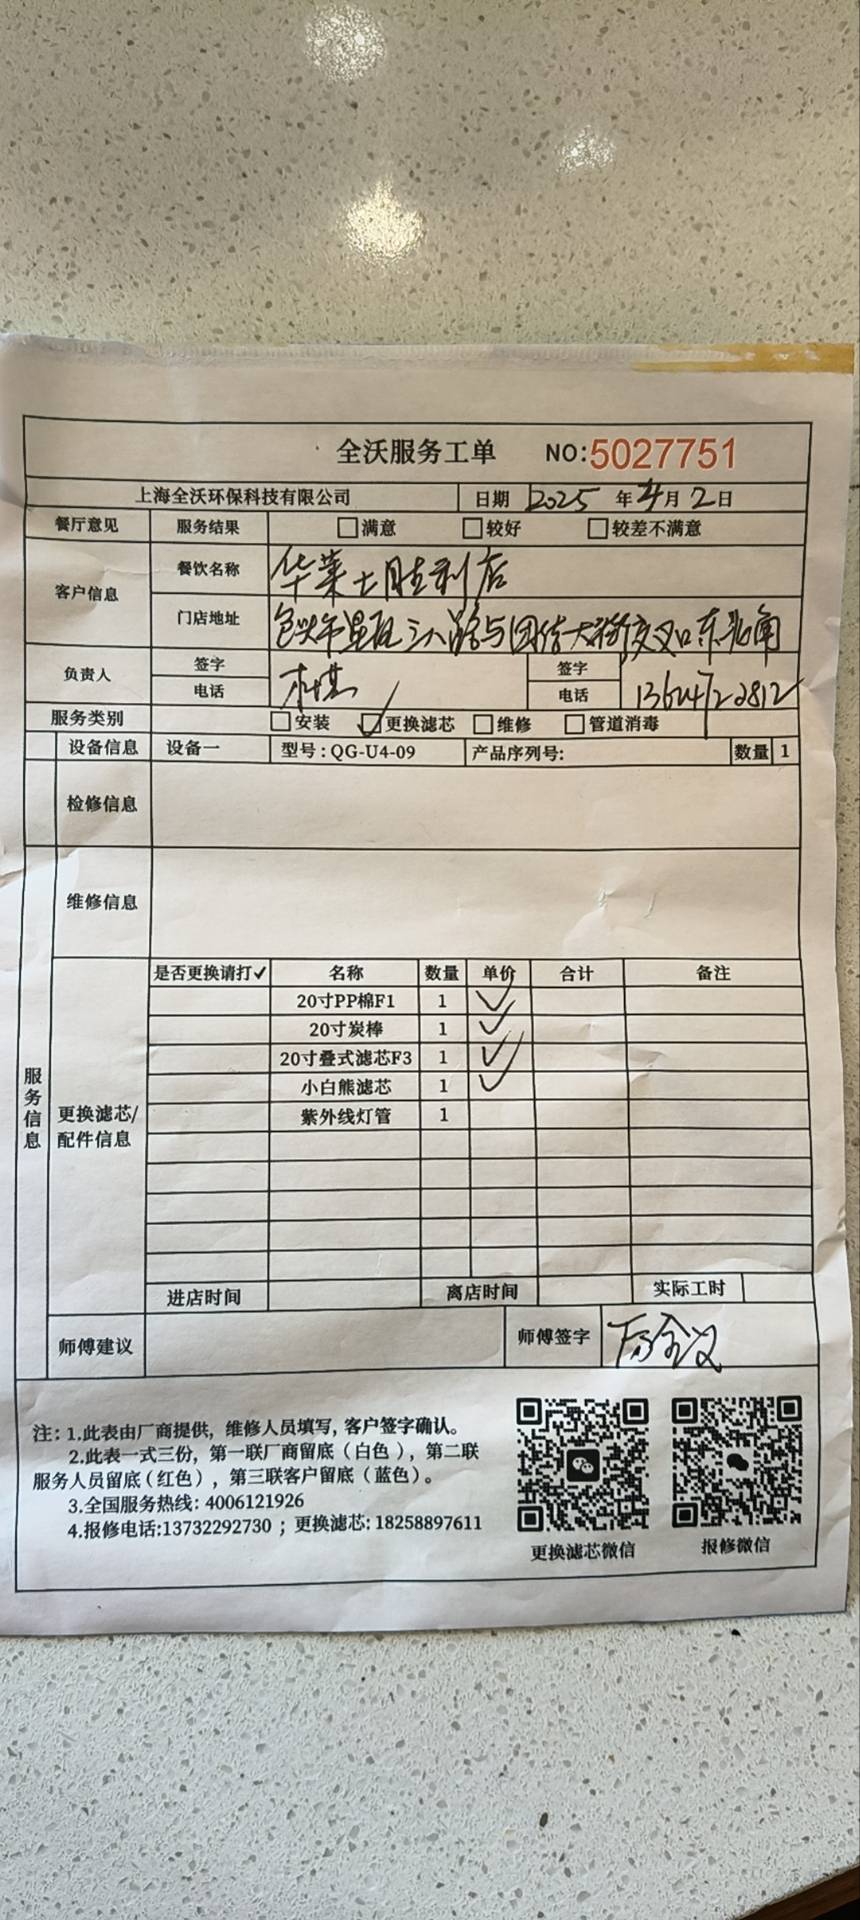 全沃服务工单 NO:5027751
上海全沃环保科技有限公司 日期 2025 年 4 月 2 日
餐厅意见 服务结果 满意 较好 较差不满意
客户信息 餐饮名称 华莱士胜利店
门店地址 包头市昆区三八路与团结大街交叉口东北角
负责人 签字 签字
电话 电话 13624722812
服务类别 安装 ✓更换滤芯 维修 管道消毒
设备信息 设备一 型号:QG-U4-09 产品序列号: 数量 1
检修信息
维修信息
服务信息
更换滤芯/配件信息
是否更换请打✓ 名称 数量 单价 合计 备注
20寸PP棉F1 1 ✓
20寸炭棒 1 ✓
20寸叠式滤芯F3 1 ✓
小白熊滤芯 1 ✓
紫外线灯管 1
进店时间 离店时间 实际工时
师傅建议 师傅签字
注: 1.此表由厂商提供，维修人员填写, 客户签字确认。
2.此表一式三份，第一联厂商留底（白色），第二联
服务人员留底（红色），第三联客户留底（蓝色）。
3.全国服务热线: 4006121926
4.报修电话:13732292730 ; 更换滤芯: 18258897611
更换滤芯微信 报修微信